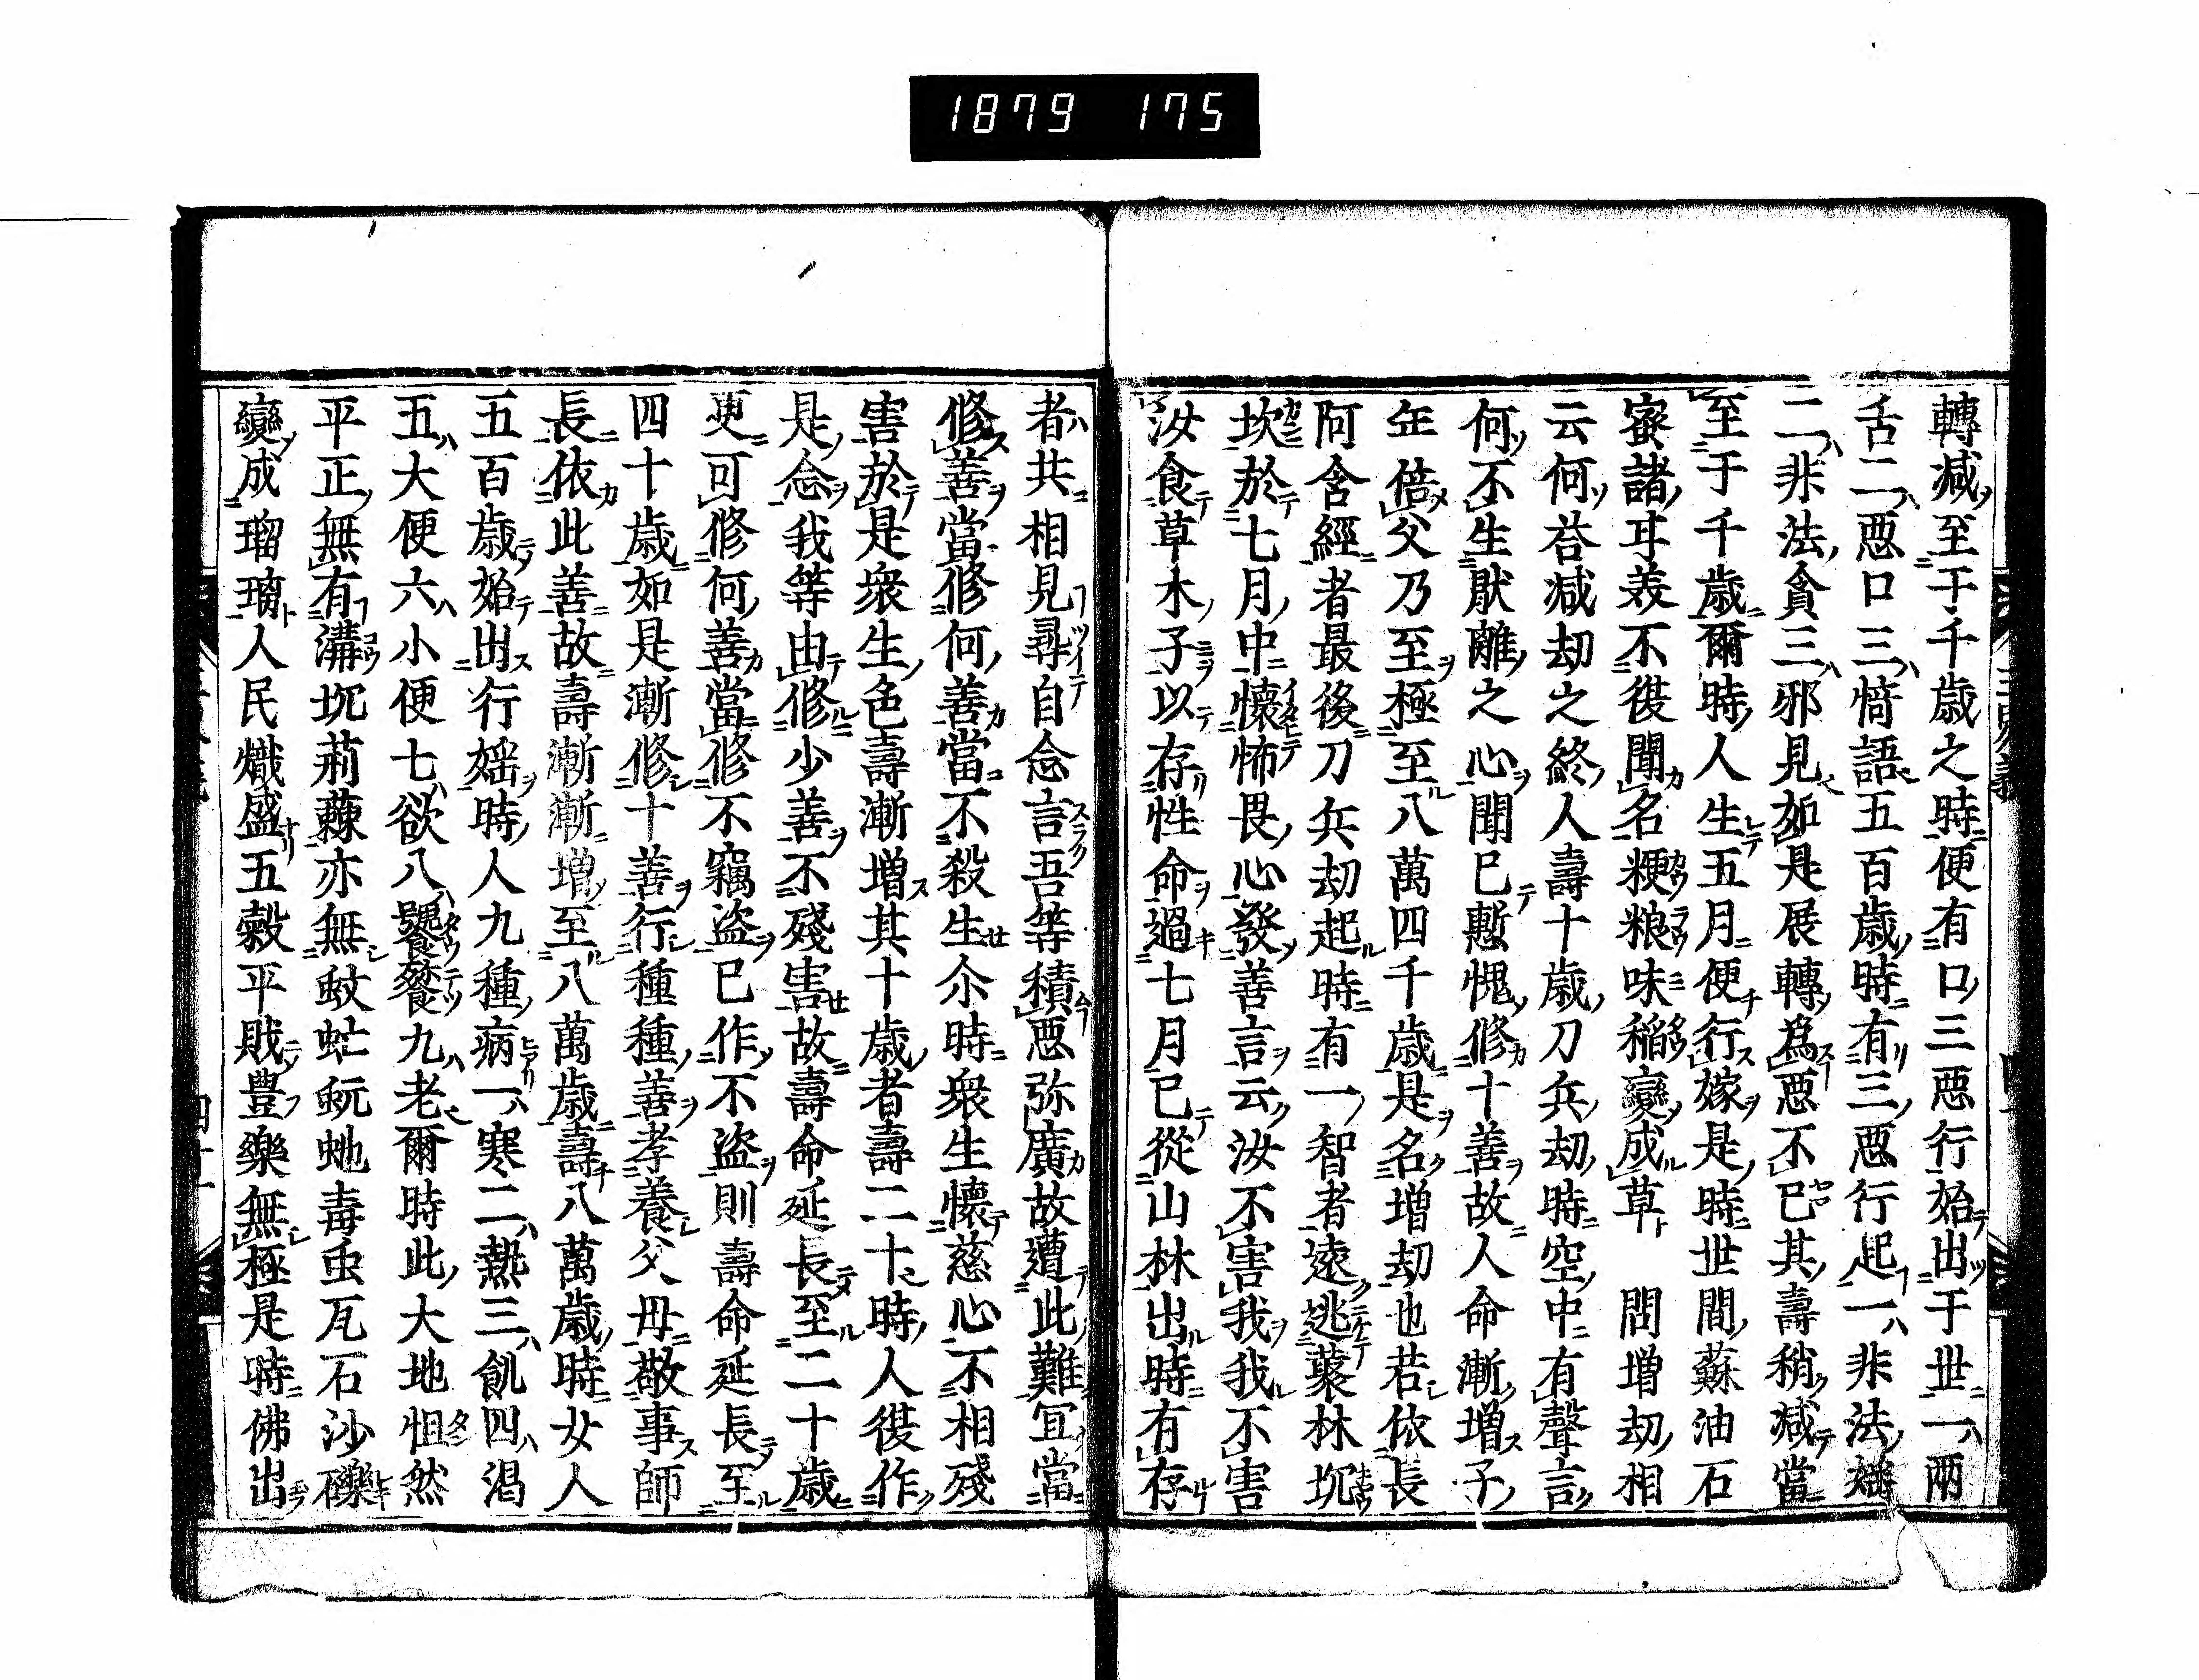 1879 175
轉減至于千歳之時便有口三惡行始出于世一兩
舌二惡口三綺語五百歳時有三惡行起一非法婬
二非法貪三邪見如是展轉為惡不已其壽稍減當
至于千歳爾時人生五月便行嫁是時世間蘇油石
蜜諸耳羙不復聞名粳粮味稲變成草 問増刧相
云何荅減刧之終人壽十歳刀兵刧時空中有聲言
何不生猒離之心聞已慙愧修十善故人命漸増子
年倍父乃至極至八萬四千歳是名増刧也若依長
阿含經者最後刀兵刧起時有一智者遠逃藂林坑
坎於七月中懐怖畏心發善言云汝不害我我不害
汝食草木子以存性命過七月已從山林出時有存
者共相見尋自念言吾等積惡弥廣故遭此難宜當
修善當修何善當不殺生尒時衆生懐慈心不相殘
害於是衆生色壽漸増其十歳者壽二十時人復作
是念我等由修少善不殘害故壽命延長至二十歳
更可修何善當修不竊盗已作不盗則壽命延長至
四十歳如是漸修十善行種種善孝養父母敬事師
長依此善故壽漸漸増至八萬歳壽八萬歳時女人
五百歳始出行婬時人九種病一寒二熱三飢四渇
五大便六小便七欲八饕餮九老爾時此大地怚然
平正無有溝坑荊蕀亦無蚊虻蚖虵毒虫瓦石沙礫
變成瑠璃人民熾盛五穀平賎豊樂無極是時佛出